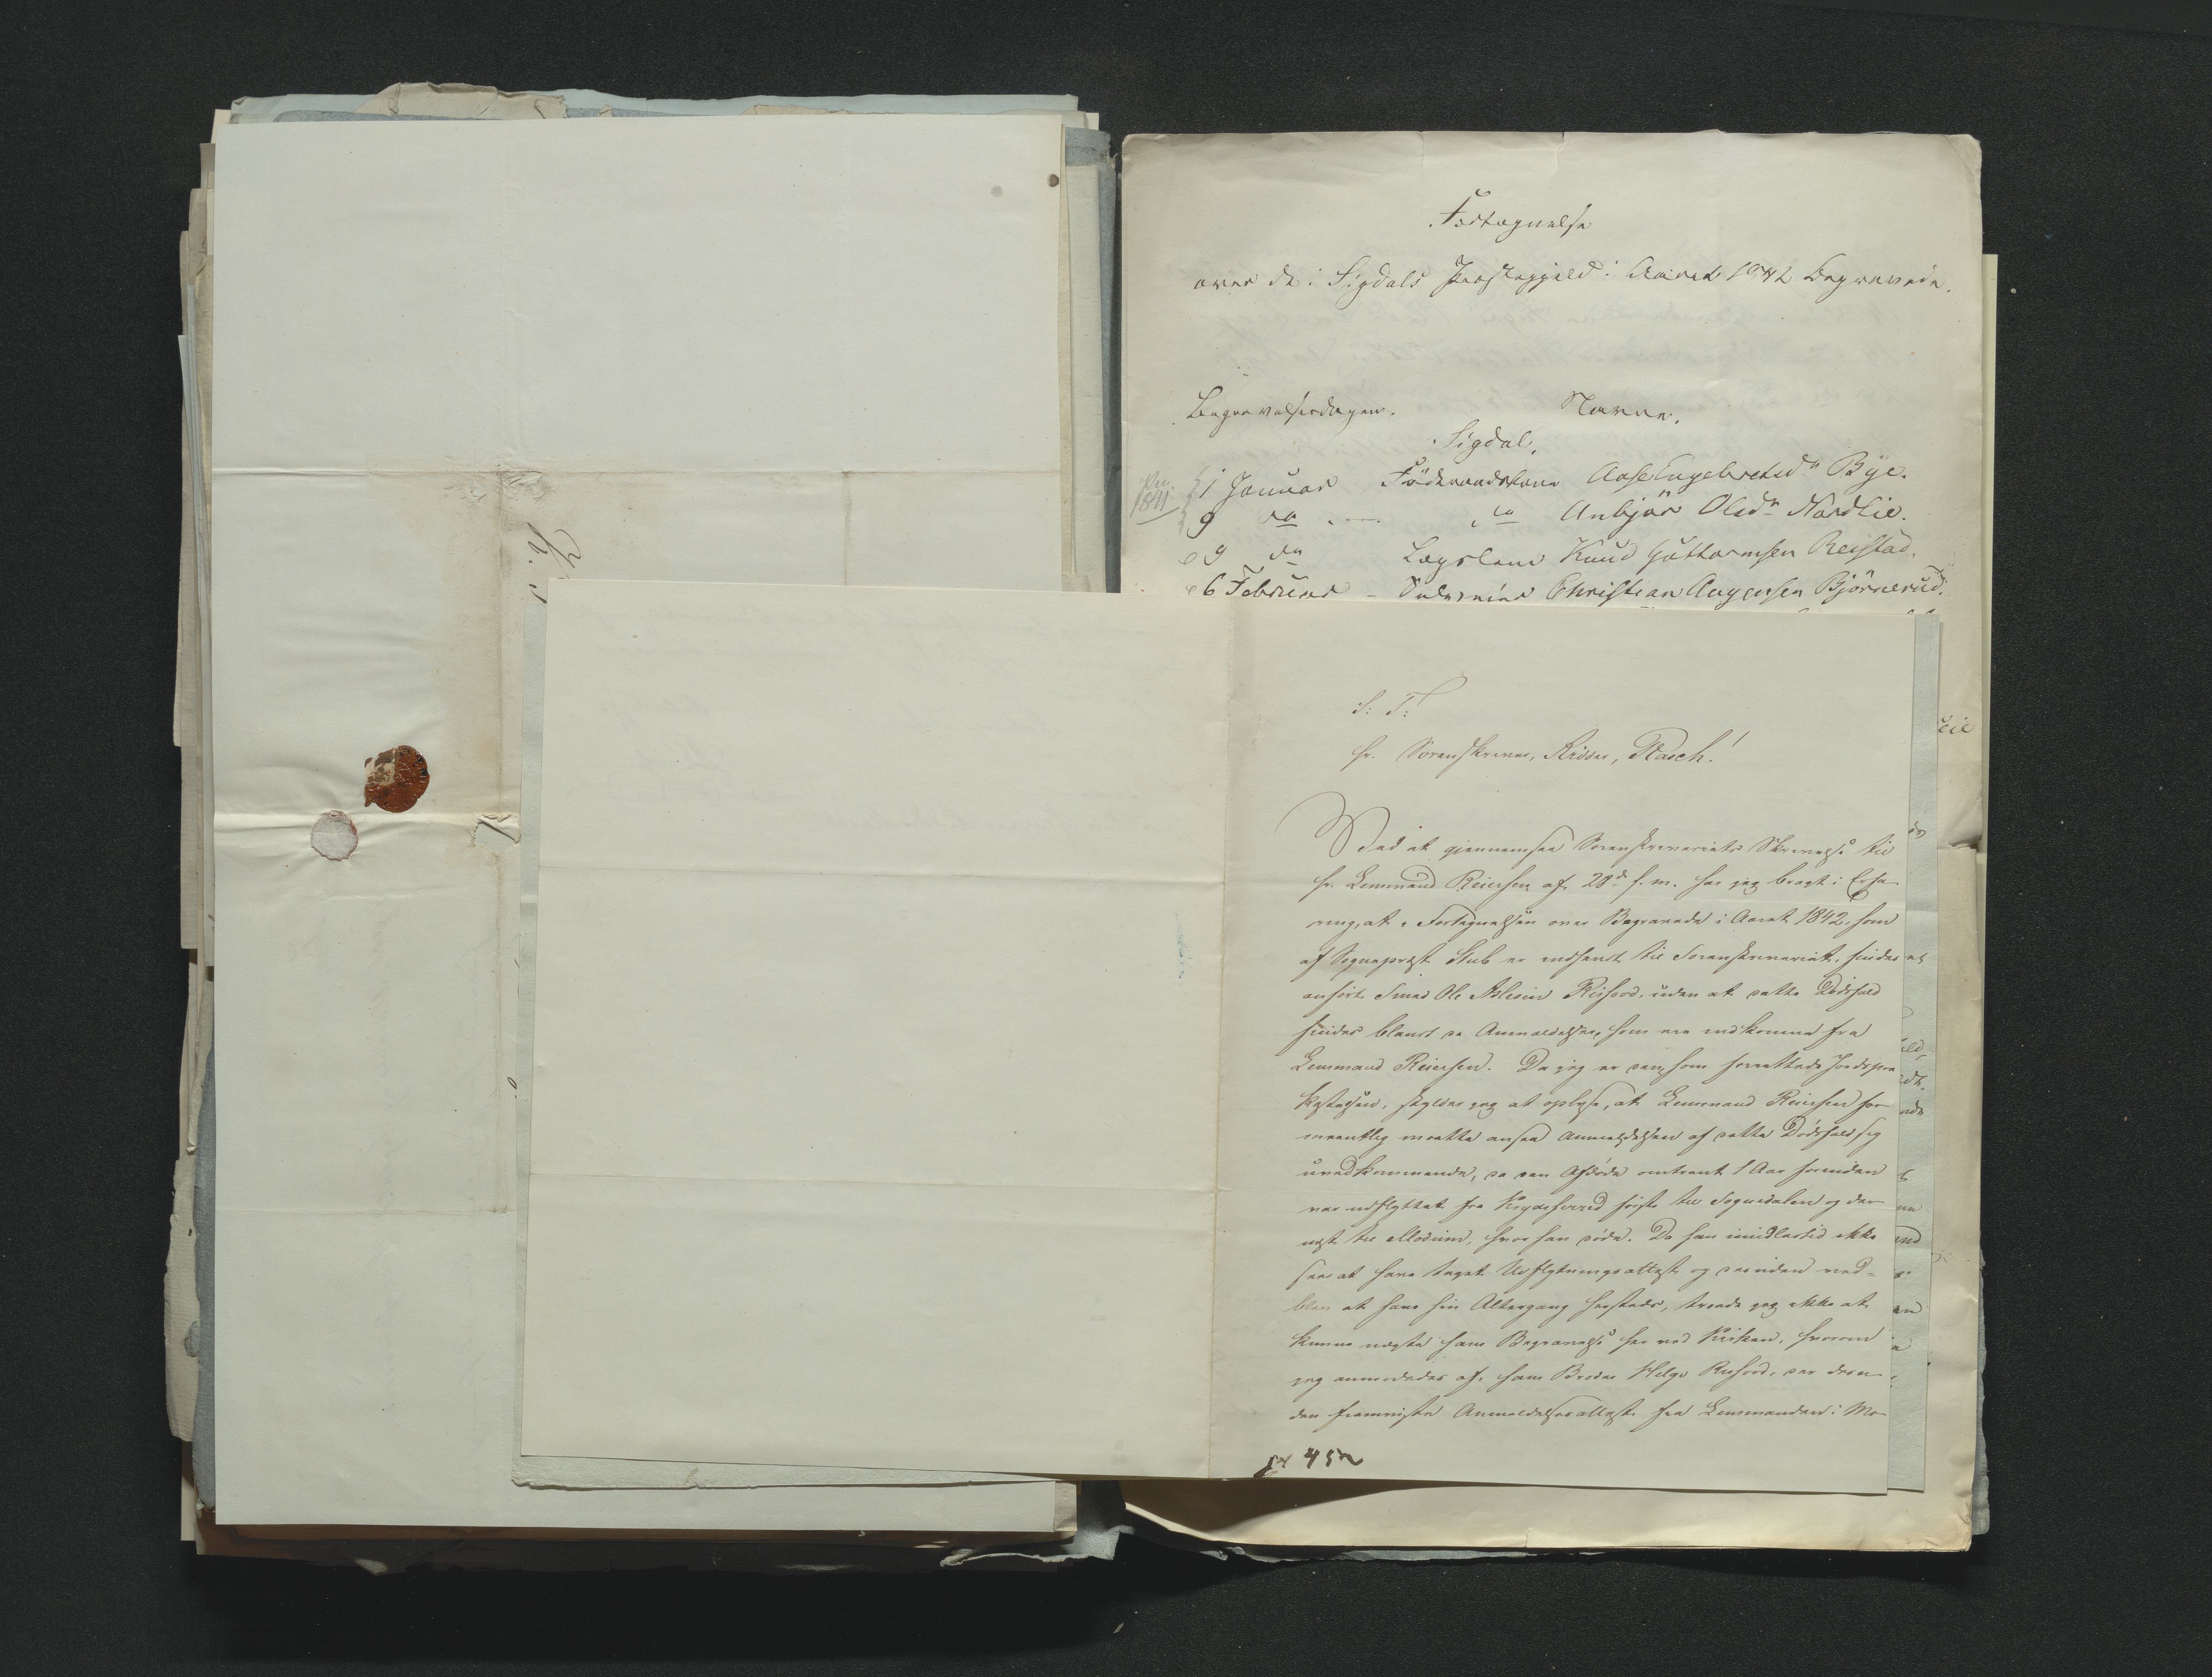 Fortegnelse
over de i Sigdals Præstegjeld i Aaret 1842 Begravede.
Begravelsesdagen. Navne.
Sigdal.
1841
1 Januar Föderaadskone Aase Engebretsdn Bye.
9 do — do Anbjør Olsdn Nordlie.
9 do Lægslem Knud Guttormsen Reistad.
6 Februar - Christian Aagesen Björnerud.
S: T:
Hr. Sorenskriver, Ridder, Rasch!
Ved at gjennemsee Sorenskriveriets Skrivelse til
Hr. Lensmand Reiersen af 28de f. m. har jeg bragt i Erfa-
ring, at i Fortegnelsen over Begravede i Aaret 1842, som
af Sognepræst Stub er indsendt til Sorenskriveriet, findes
anført Smed Ole Aslesen Riisfood, uden at dette Dødsfald
findes blandt de Anmeldelser, som ere indkomne fra
Lensmand Reiersen. Da jeg er den, som forrettede Jordspaa-
kastelsen, skylder jeg at oplyse, at Lensmand Reiersen for-
meentlig maatte ansee Anmeldelsen af dette Dødsfald sig
uvedkommende, da den Afdøde omtrent 1 Aar forinden
var udflyttet fra Krydsherred først til Sognedalen og der-
næst til Modum, hvor han døde. Da han imidlertid ikke
sees at have taget Udflytningsattest og desuden ved-
blev at have sin Altergang hersteds, troede jeg ikke at
kunne nægte ham Begravelse her ved Kirken, hvorom
jeg anmodedes af hans Broder Helge Riisfood, der desu-
den fremviste Anmeldelsesattest fra Lensmanden i Mo-
452